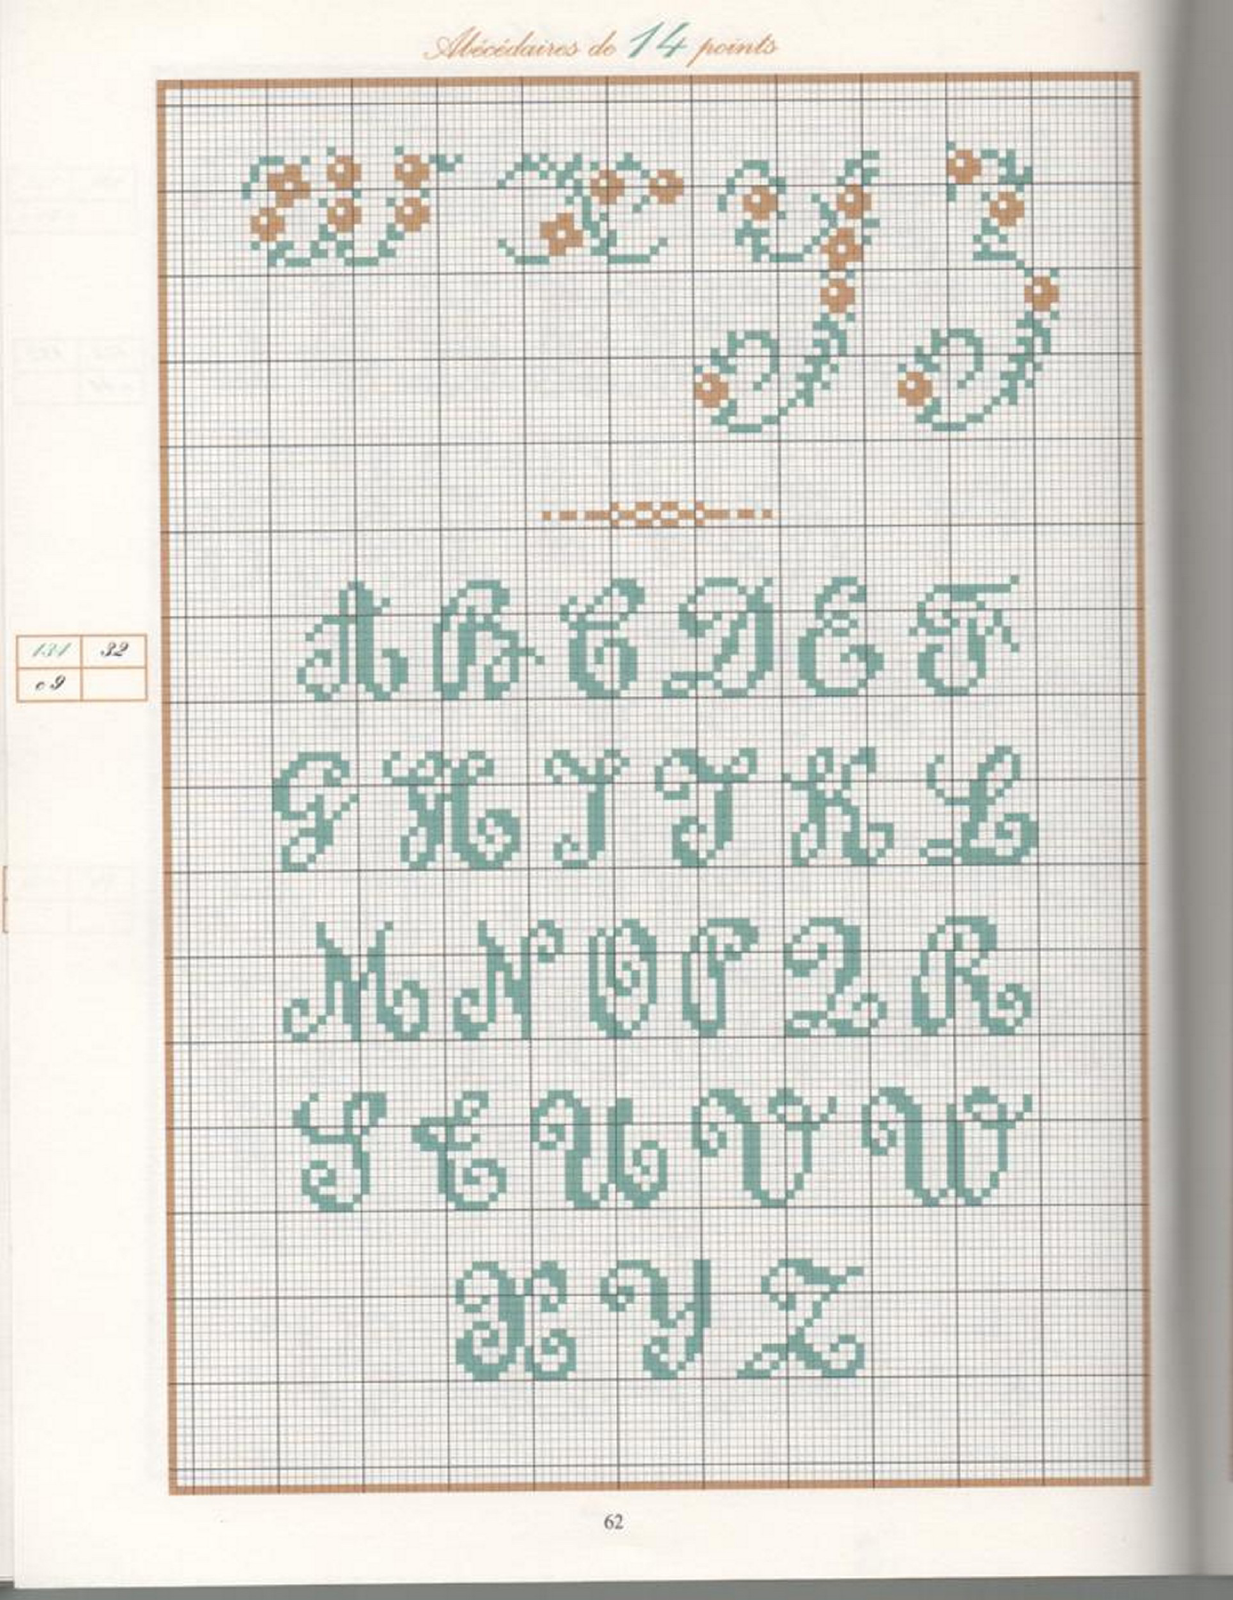 Abécédaires de 14 points
W X Y Z
A B C D E F
131 32
c9
G H I J K L
M N O P Q R
S T U V W
X Y Z
62